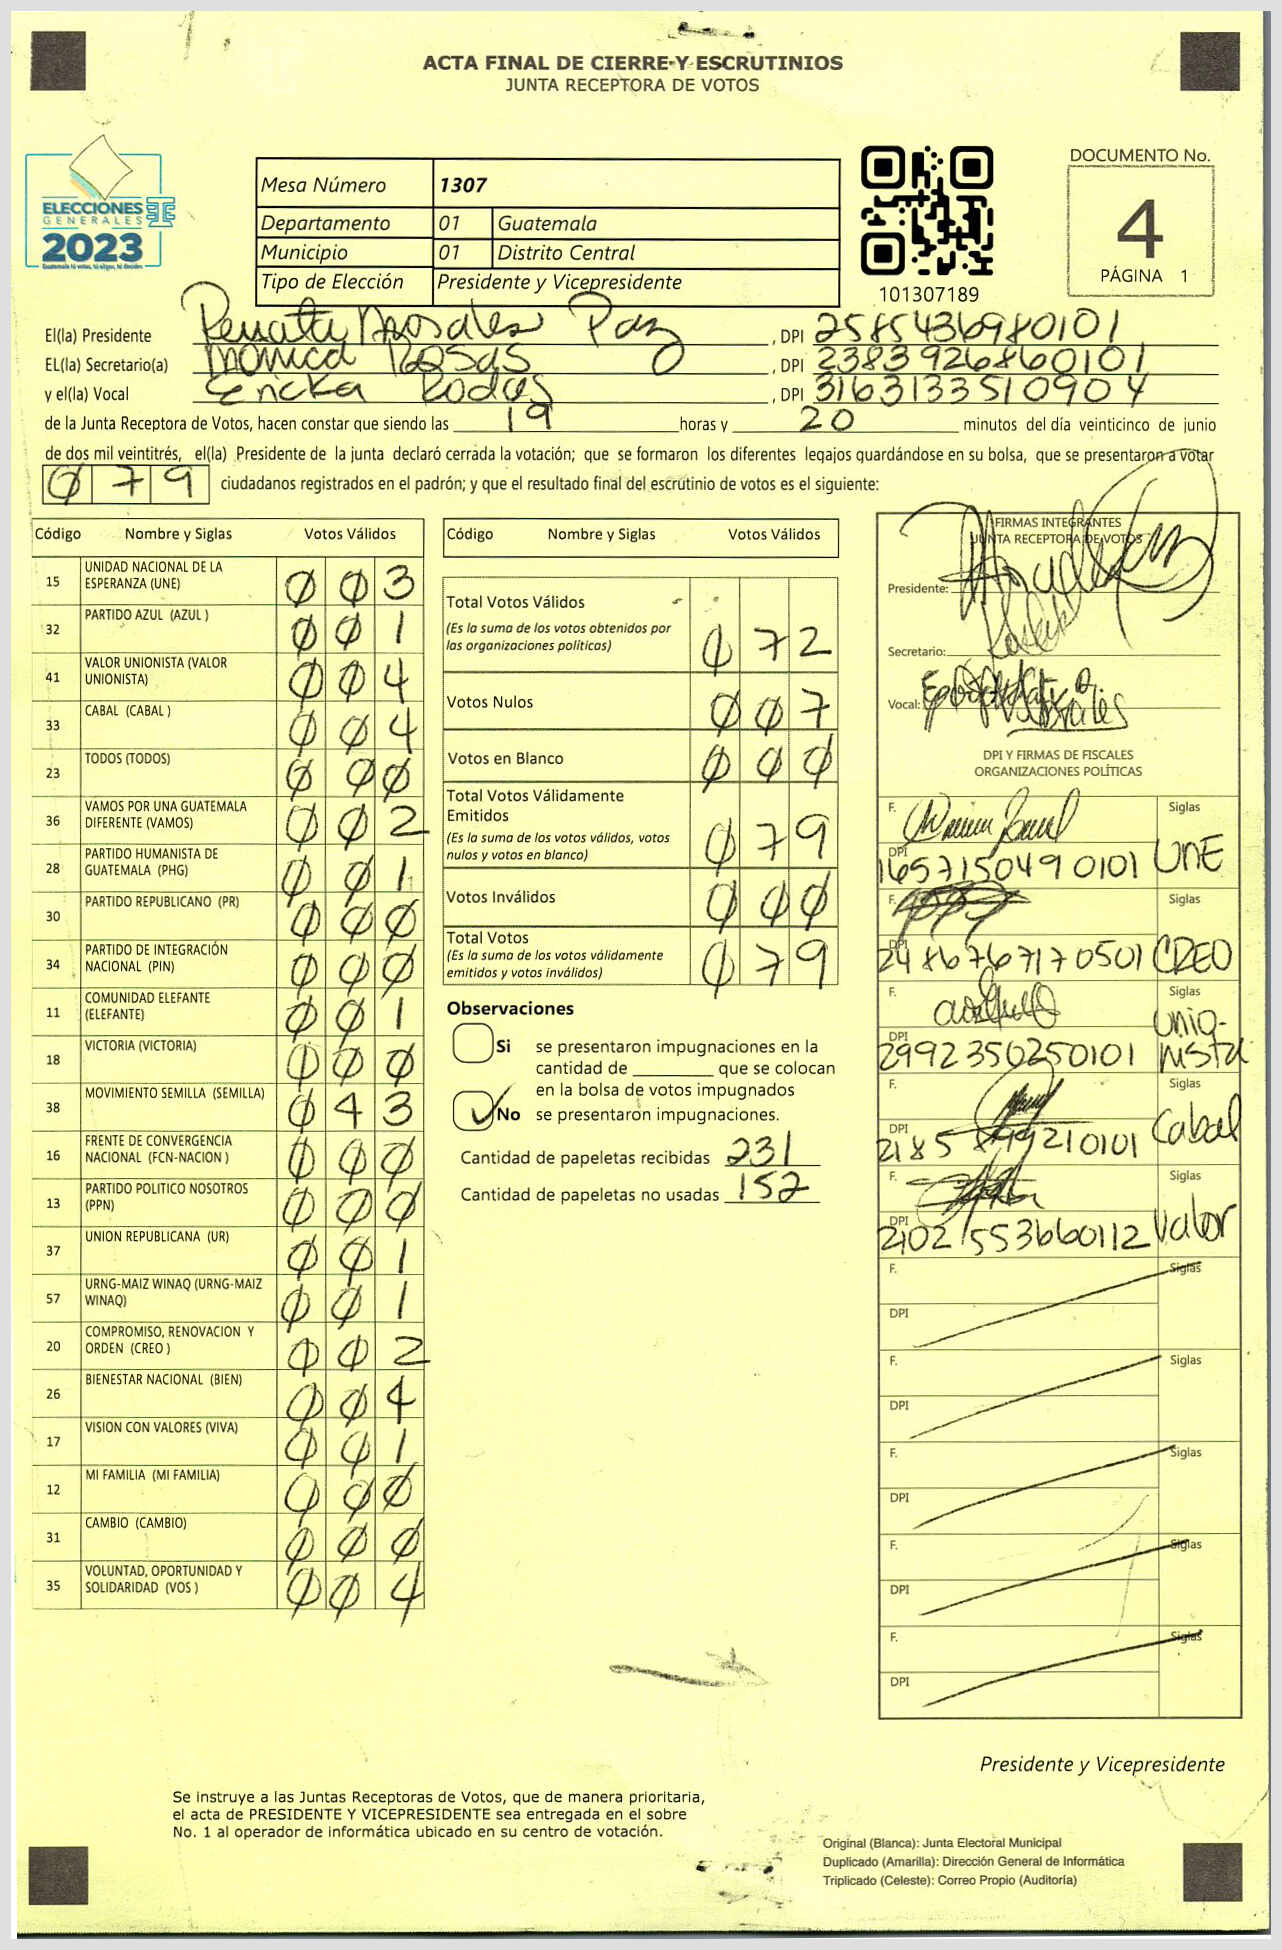 ACTA FINAL DE CIERRE Y ESCRUTINIOS
JUNTA RECEPTORA DE VOTOS
ELECCIONES
GENERALES
2023
Guatemala tú votas, tú eliges, tú decides
Mesa Número 1307
Departamento 01 Guatemala
Municipio 01 Distrito Central
Tipo de Elección Presidente y Vicepresidente
101307189
DOCUMENTO No.
4
PÁGINA 1
El(la) Presidente Renata Morales Paz, DPI 2585436980101
EL(la) Secretario(a) Monica Rosas, DPI 2383926860101
y el(la) Vocal Ericka Rodas, DPI 3163133510904
de la Junta Receptora de Votos, hacen constar que siendo las 19 horas y 20 minutos del día veinticinco de junio
de dos mil veintitrés, el(la) Presidente de la junta declaró cerrada la votación; que se formaron los diferentes legajos guardándose en su bolsa, que se presentaron a votar
079 ciudadanos registrados en el padrón; y que el resultado final del escrutinio de votos es el siguiente:
Código Nombre y Siglas Votos Válidos
15 UNIDAD NACIONAL DE LA ESPERANZA (UNE) 003
32 PARTIDO AZUL (AZUL ) 001
41 VALOR UNIONISTA (VALOR UNIONISTA) 004
33 CABAL (CABAL ) 004
23 TODOS (TODOS) 000
36 VAMOS POR UNA GUATEMALA DIFERENTE (VAMOS) 002
28 PARTIDO HUMANISTA DE GUATEMALA (PHG) 001
30 PARTIDO REPUBLICANO (PR) 000
34 PARTIDO DE INTEGRACIÓN NACIONAL (PIN) 000
11 COMUNIDAD ELEFANTE (ELEFANTE) 001
18 VICTORIA (VICTORIA) 000
38 MOVIMIENTO SEMILLA (SEMILLA) 043
16 FRENTE DE CONVERGENCIA NACIONAL (FCN-NACION ) 000
13 PARTIDO POLITICO NOSOTROS (PPN) 000
37 UNION REPUBLICANA (UR) 001
57 URNG-MAIZ WINAQ (URNG-MAIZ WINAQ) 001
20 COMPROMISO, RENOVACION Y ORDEN (CREO ) 002
26 BIENESTAR NACIONAL (BIEN) 004
17 VISION CON VALORES (VIVA) 001
12 MI FAMILIA (MI FAMILIA) 000
31 CAMBIO (CAMBIO) 000
35 VOLUNTAD, OPORTUNIDAD Y SOLIDARIDAD (VOS ) 004
Código Nombre y Siglas Votos Válidos
Total Votos Válidos
(Es la suma de los votos obtenidos por las organizaciones políticas) 072
Votos Nulos 007
Votos en Blanco 000
Total Votos Válidamente Emitidos
(Es la suma de los votos válidos, votos nulos y votos en blanco) 079
Votos Inválidos 000
Total Votos
(Es la suma de los votos válidamente emitidos y votos inválidos) 079
Observaciones
Si se presentaron impugnaciones en la
cantidad de ________ que se colocan
en la bolsa de votos impugnados
No se presentaron impugnaciones.
Cantidad de papeletas recibidas 231
Cantidad de papeletas no usadas 152
FIRMAS INTEGRANTES
JUNTA RECEPTORA DE VOTOS
Presidente:
Secretario:
Vocal:
DPI Y FIRMAS DE FISCALES
ORGANIZACIONES POLÍTICAS
F. Siglas
DPI 1657150490101 UNE
F. Siglas
DPI 2486767170501 CREO
F. Siglas
DPI 2992350250101
F. Siglas
DPI Cabal
F. Siglas
DPI 2102553660112 Valor
F. Siglas
DPI
F. Siglas
DPI
F. Siglas
DPI
F. Siglas
DPI
F. Siglas
DPI
Presidente y Vicepresidente
Se instruye a las Juntas Receptoras de Votos, que de manera prioritaria,
el acta de PRESIDENTE Y VICEPRESIDENTE sea entregada en el sobre
No. 1 al operador de informática ubicado en su centro de votación.
Original (Blanca): Junta Electoral Municipal
Duplicado (Amarilla): Dirección General de Informática
Triplicado (Celeste): Correo Propio (Auditoría)